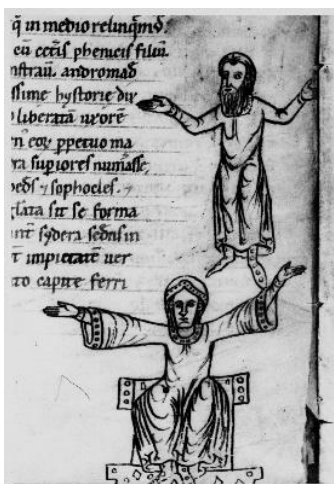 q̄ in medio relinqm̄d.
eū cet̄is phenicis filiū.
nstrau. andromad
ssime hystorie diu
liberatā uxorē
n̄ eoꝝ ꝑpetuo ma
ra supiores numasse,
peds ⁊ sophocles.
glata sit se forma
nt sydera sedn̄s in
t impietatē uer
to capite ferri